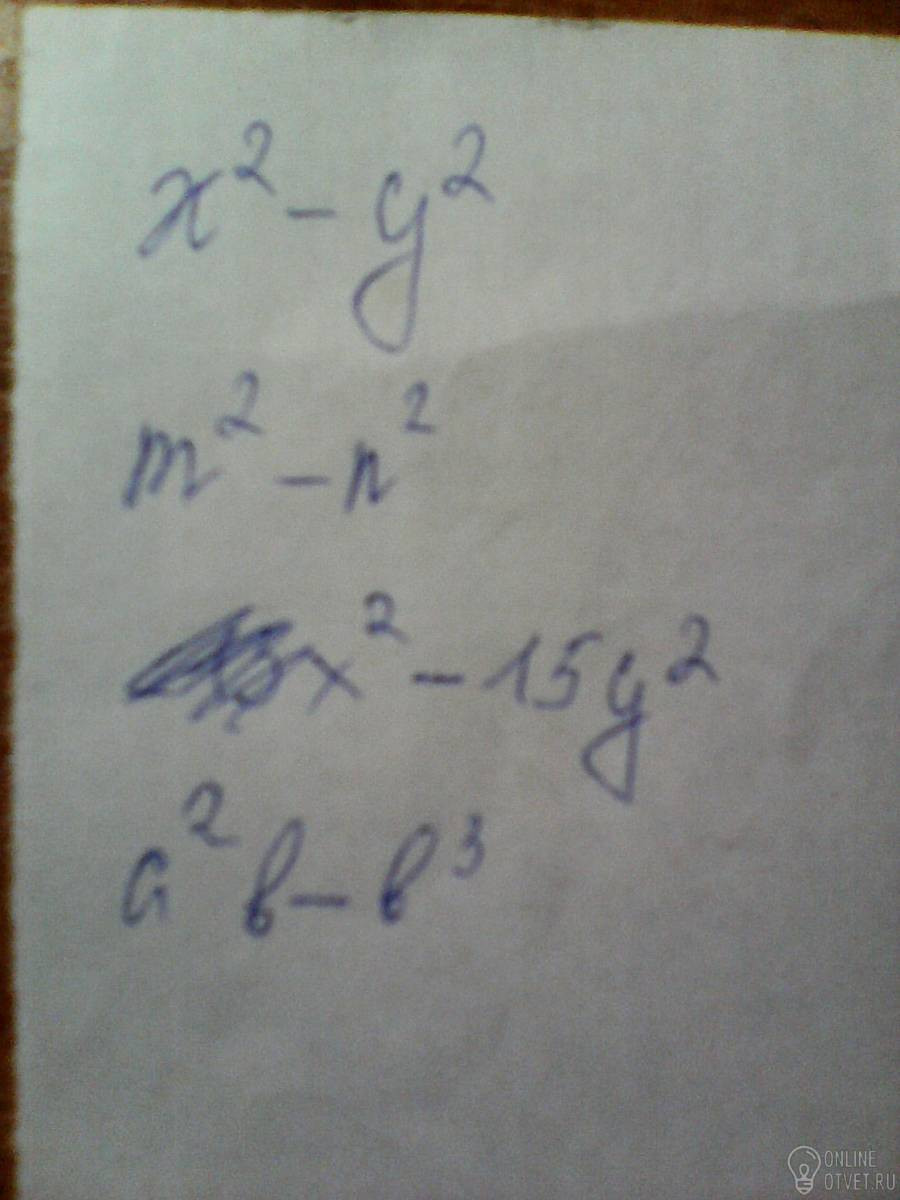 x² - y²
m² - n²
x² - 15y²
a²b - b³
ONLINE
OTVET.RU